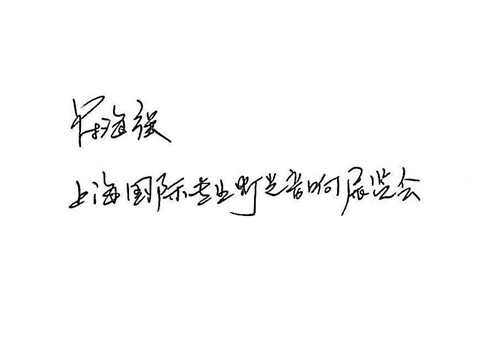 海强
上海国际专业灯光音响展览会